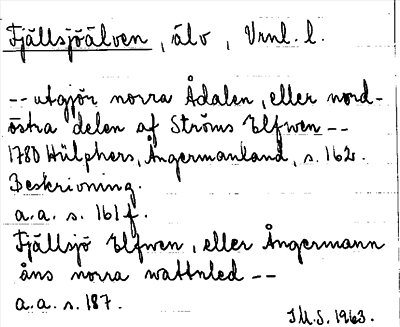 Fjällsjöälven, älv, Vrnl. l.
-- utgjör norra Ådalen, eller nord-
östra delen af Ströms Elfwen --
1780 Hülphers, Ångermanland, s. 162.
Beskrivning.
a.a. s. 161 f.
Fjällsjö Elfwen, eller Ångermann
åns norra wattnled --
a.a. s. 187.
I.M.S. 1963.